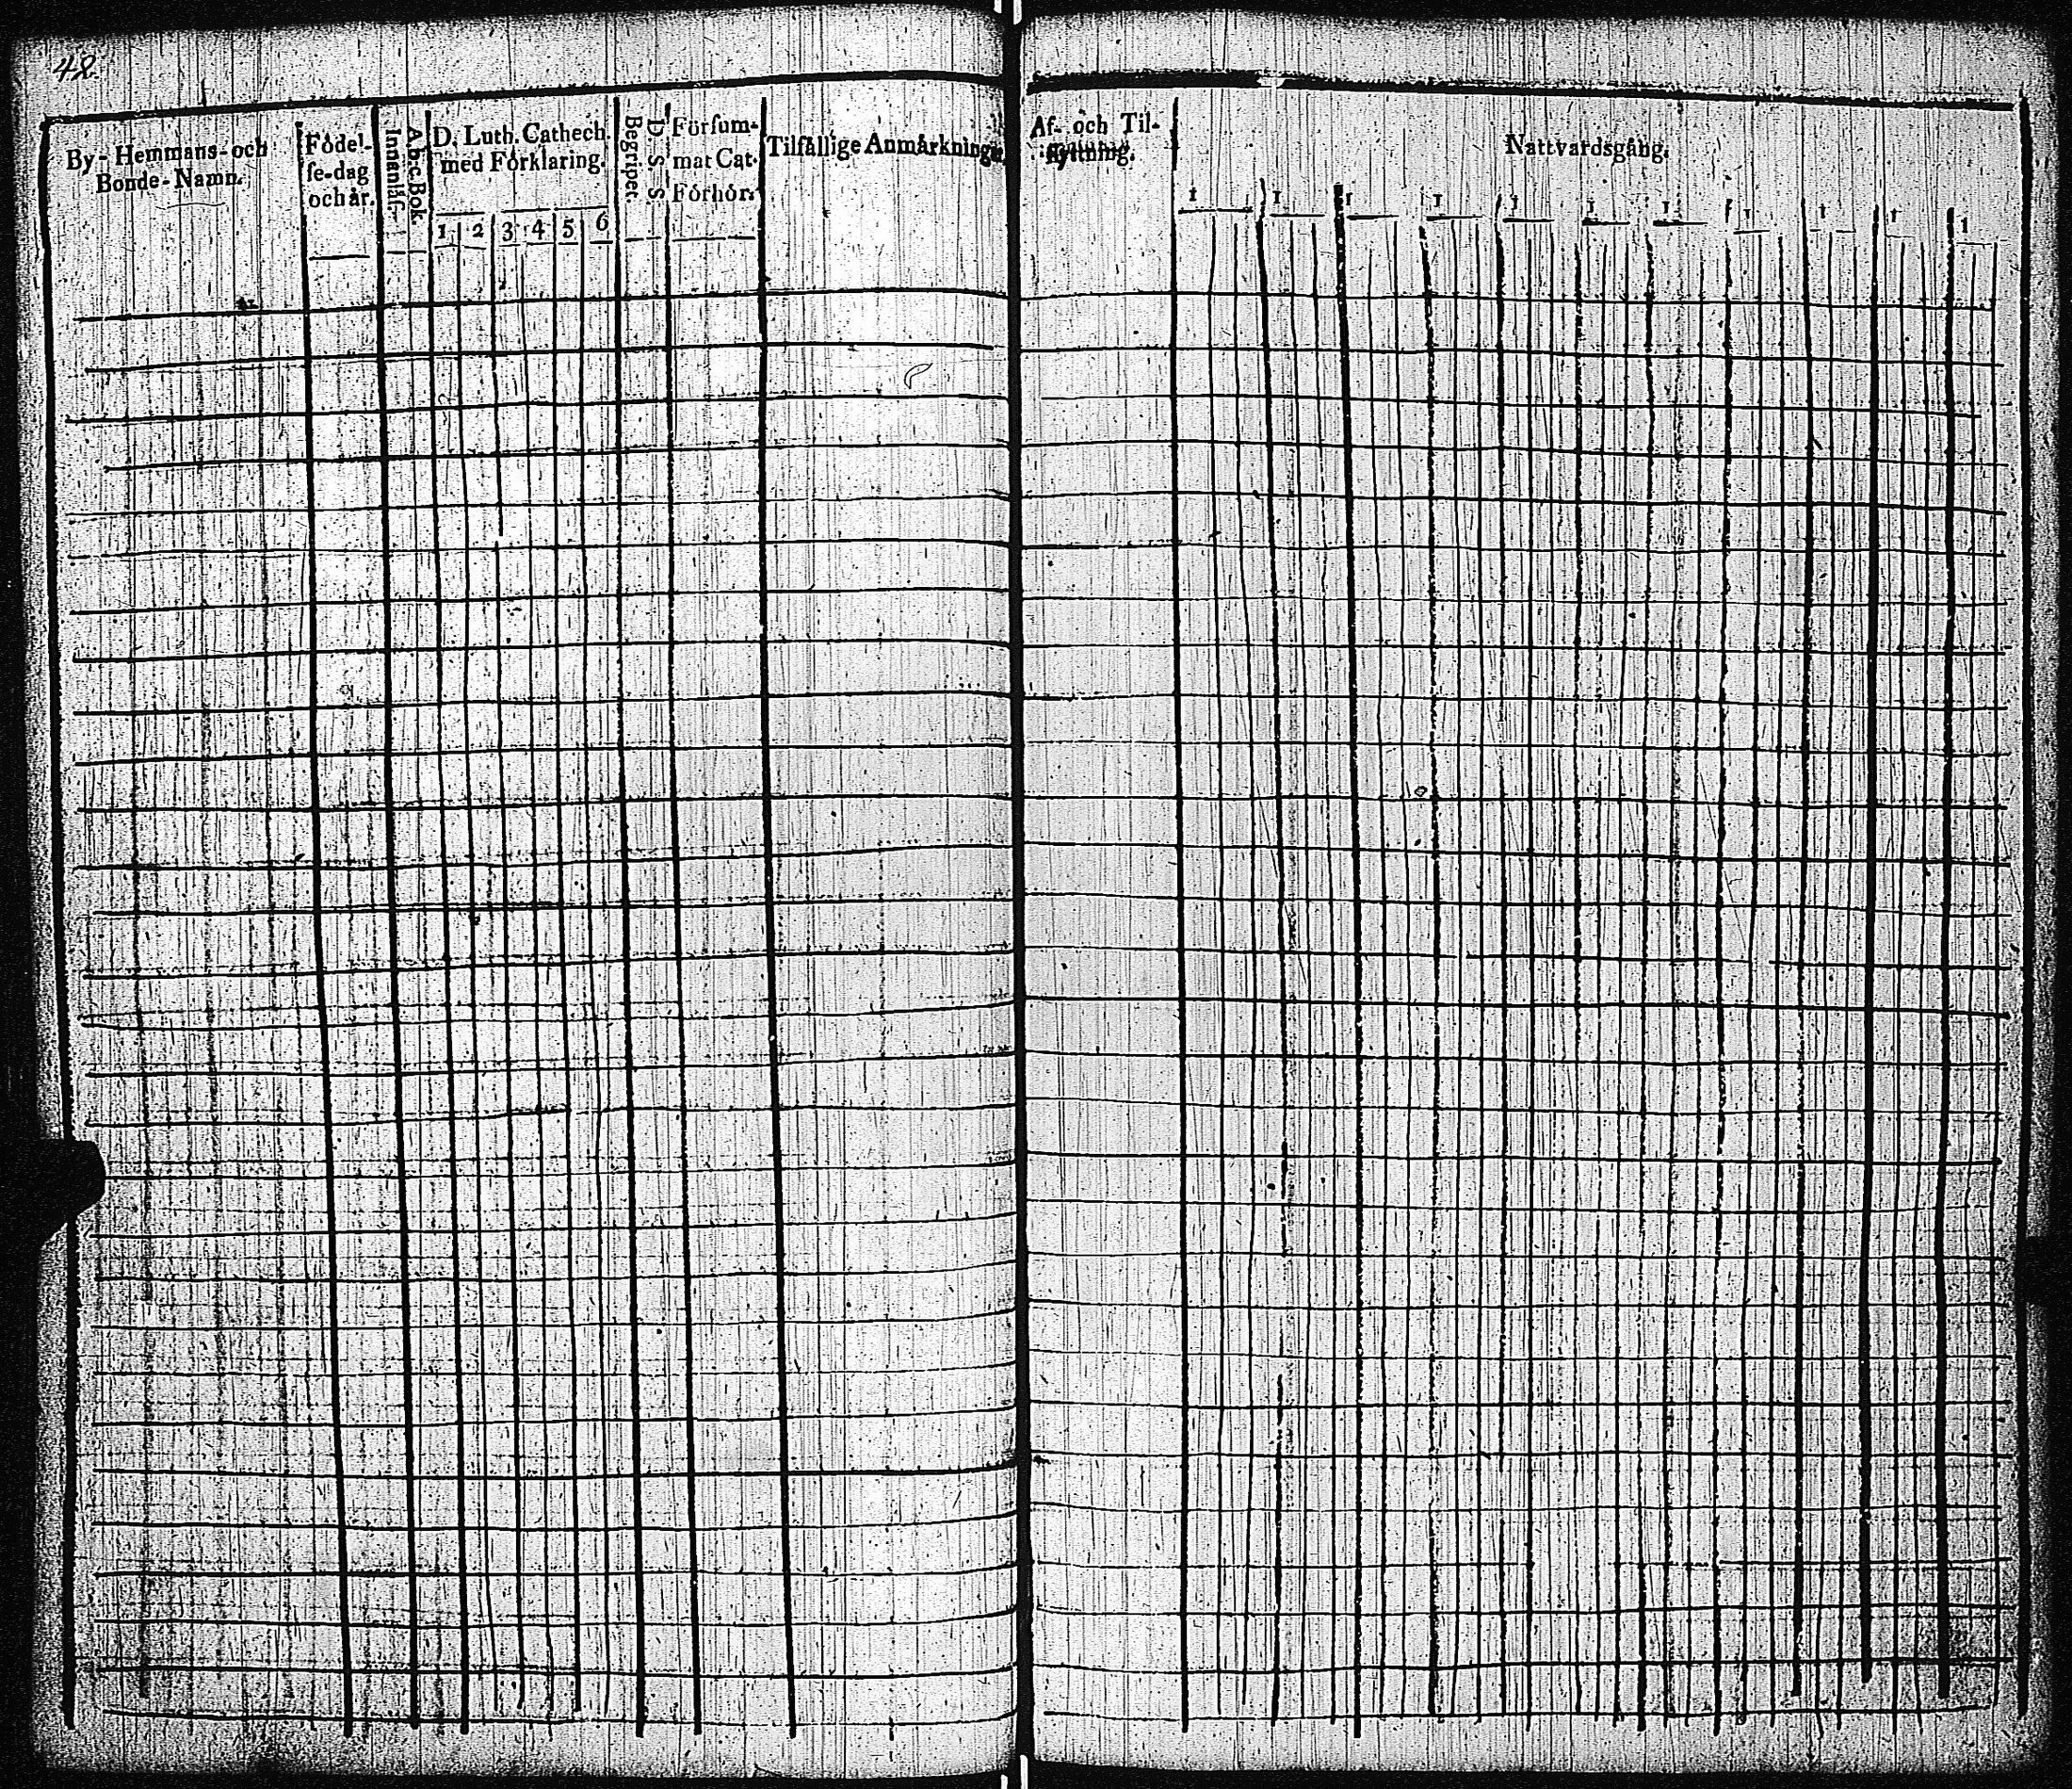 48
By- Hemmans- och
Bonde-Namn.
Födel-
se-dag
och år.
Innanläs.
A.b.c. Bok.
D. Luth. Cathech.
med Förklaring.
1 2 3 4 5 6
Begripet.
D. S. S.
Försum-
mat Cat.
Förhör.
Tilfällige Anmärkningar.
Af- och Til-
flyttning.
Nattvardsgång.
1 1 1 1 1 1 1 1 1 1 1